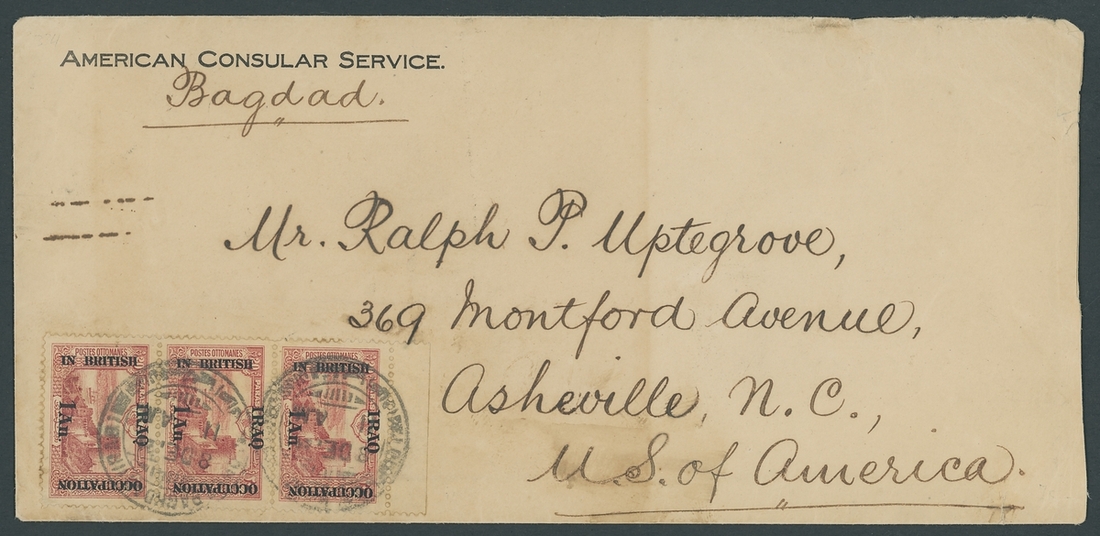 AMERICAN CONSULAR SERVICE.
Bagdad.
Mr. Ralph P. Uptegrove,
369 Montford Avenue,
Asheville, N. C.,
U. S. of America.
POSTES OTTOMANES POSTES OTTOMANES POSTES OTTOMANES
IN BRITISH IN BRITISH IN BRITISH
IRAQ IRAQ IRAQ
1 An. 1 An. 1 An.
OCCUPATION OCCUPATION OCCUPATION
8 DE
8 DE